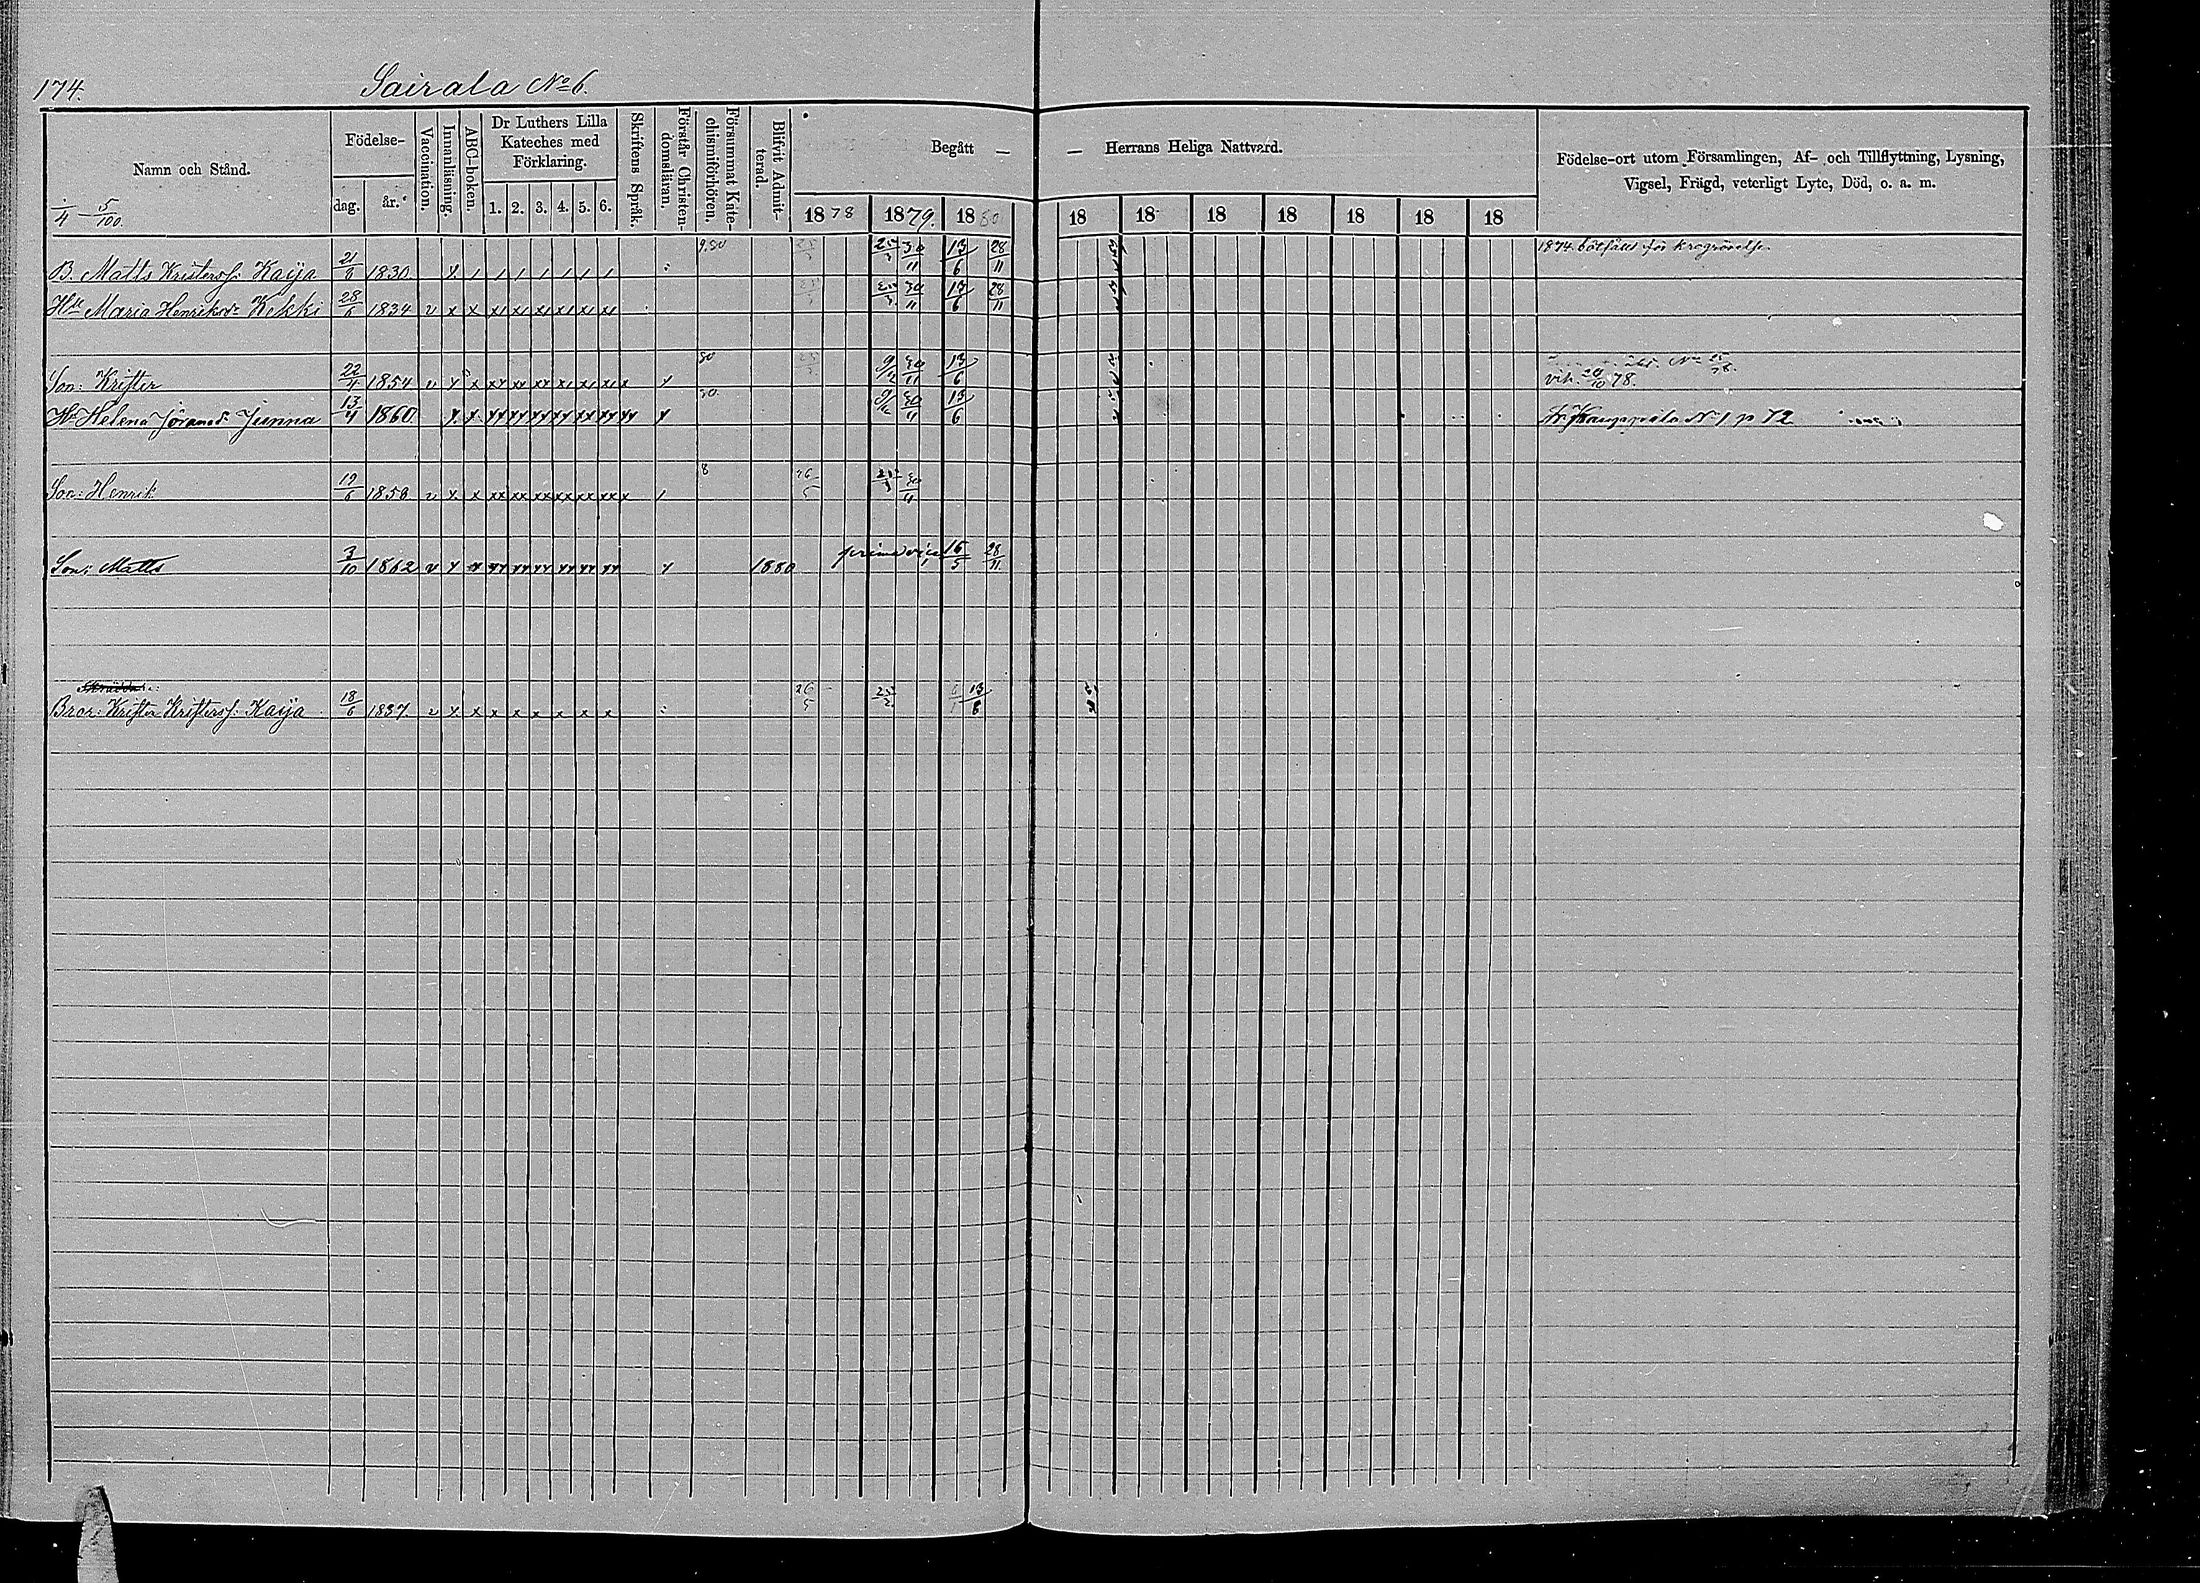 174. Sairala No 6.
Namn och Stånd.
Födelse-
dag.
år.
Vaccination.
Innanläsning.
ABC-boken.
Dr Luthers Lilla
Kateches med
Förklaring.
1. 2. 3. 4. 5. 6.
Skriftens Språk.
Förstår Christen-
domsläran.
Försummat Kate-
chismiförhören.
Blifvit Admit-
terad.
Begått — — Herrans Heliga Nattvard.
1878 1879. 1880 18 18 18 18 18 18 18
Födelse-ort utom Församlingen, Af- och Tillflyttning, Lysning,
Vigsel, Frägd, veterligt Lyte, Död, o. a. m.
1/4 — 5/100.
B. Matts Kristersf: Kaija 21/6 1830 9,80 25/3 30/11 13/6 28/11 1874 bötfälld för
Hu Maria Henriksdr Kekki 28/6 1834 v x x x x x x x x 25/3 30/11 13/6 28/11
Son: Krister 22/4 1854 v 80 9/2 30/11 13/6 vih. 20/10 78.
Hu Helena Jöransd: Junna 13/4 1860 80 9/2 30/11 13/6 fr. No 1 p 72
Son: Henrik 19/6 1858 v x x xx xx xx xx xx xx x 8 26/5 25/3 30/11
Son: Matts 3/10 1862 v 1880 prima vice 16/5 28/11
Bror: Krister Kristersf: Kaija 18/6 1837 v x x x x x x x x 26/5 25/3 13/6